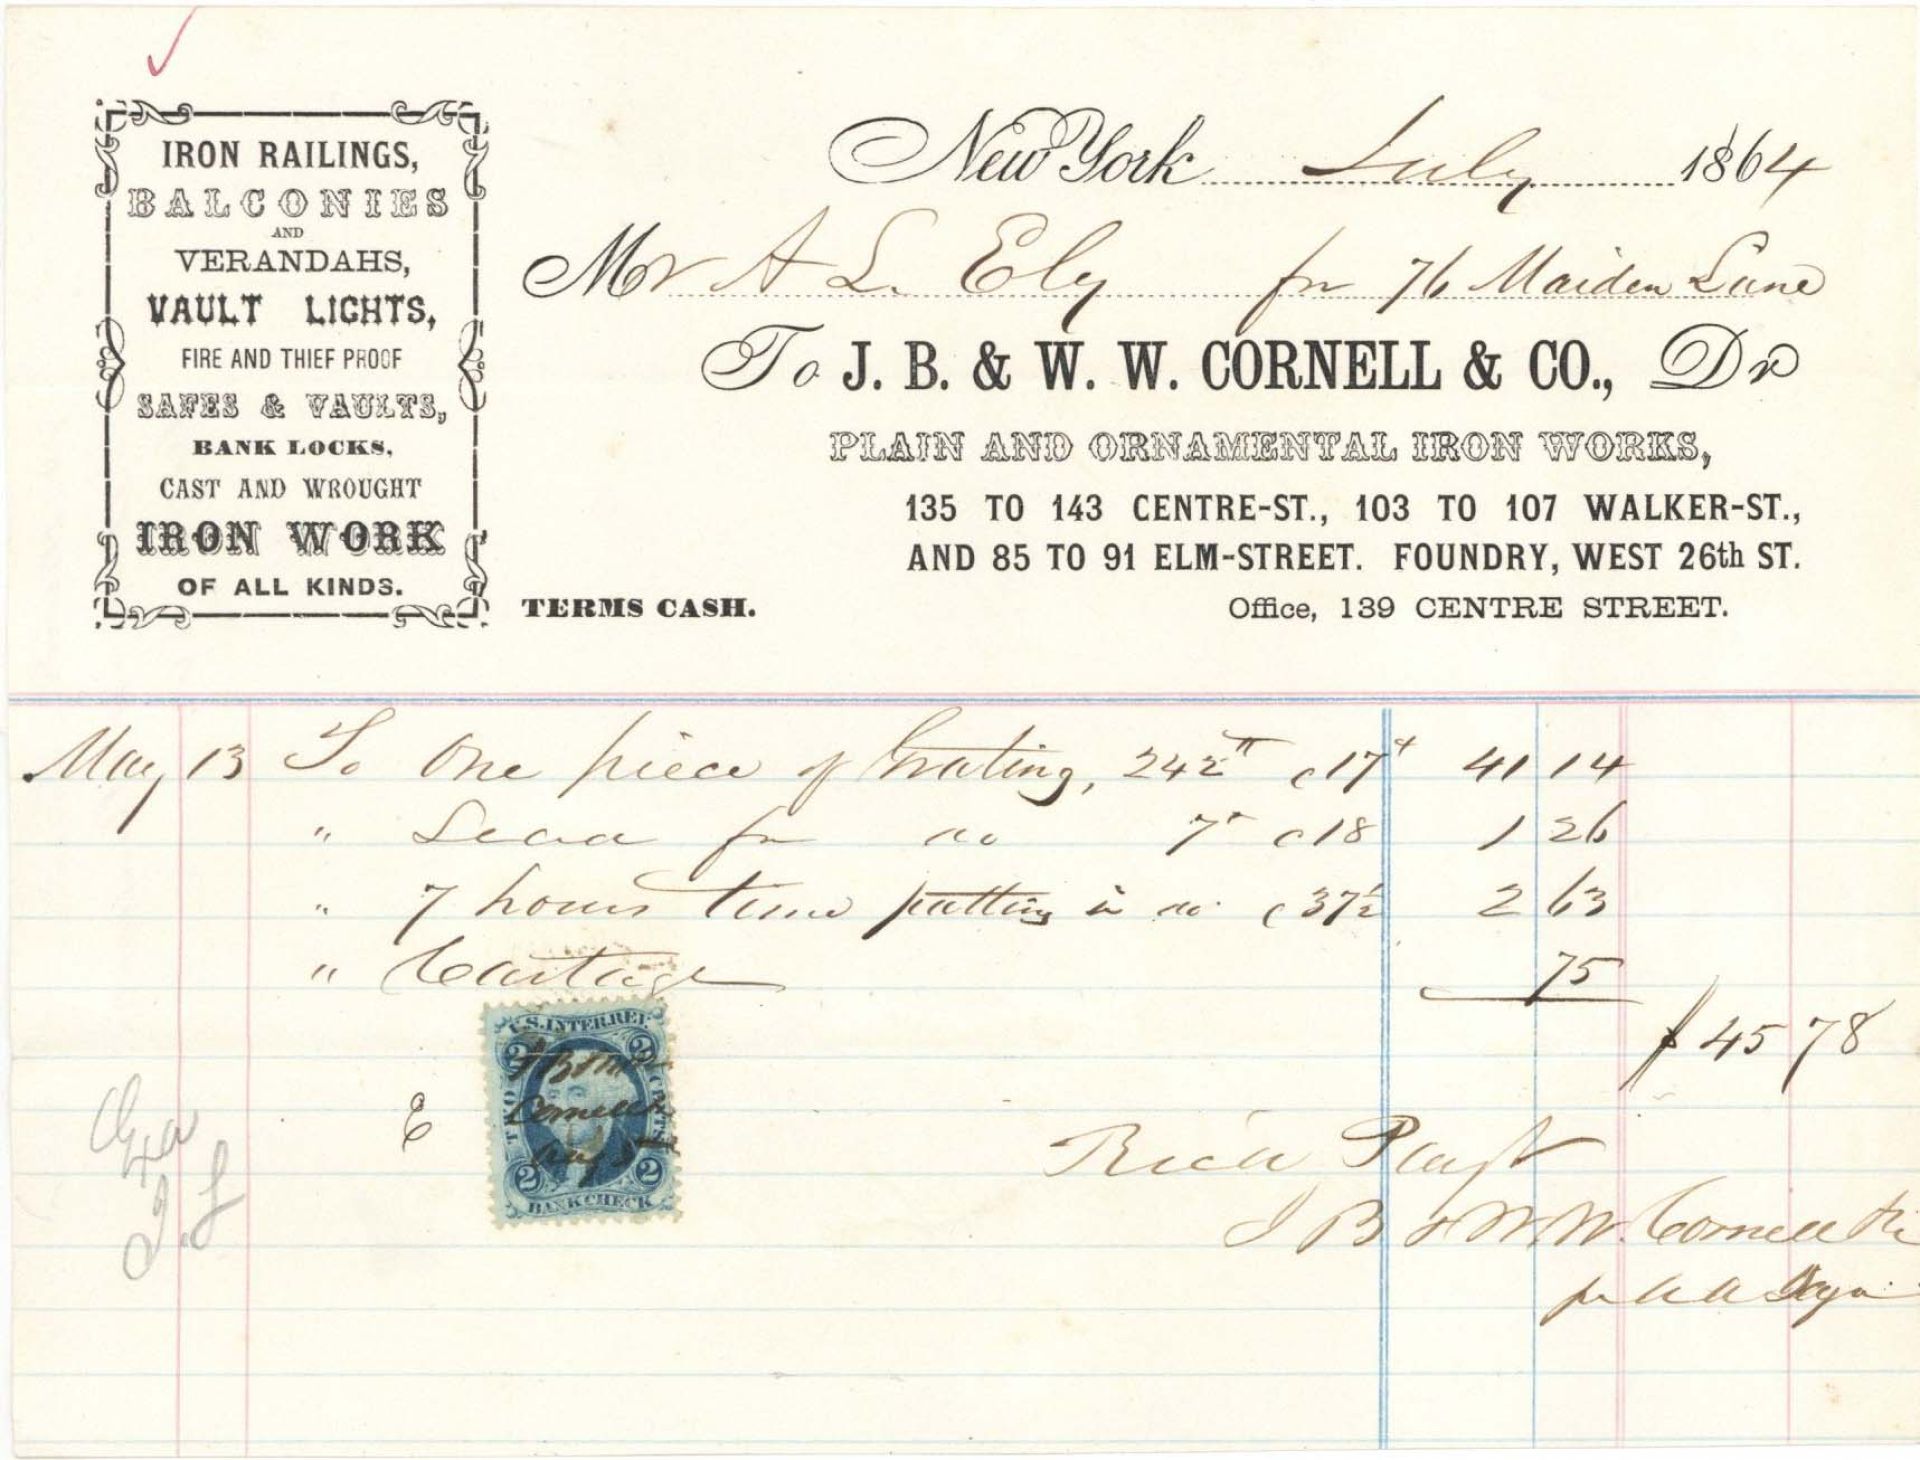 IRON RAILINGS,
BALCONIES
AND
VERANDAHS,
VAULT LIGHTS,
FIRE AND THIEF PROOF
SAFES & VAULTS,
BANK LOCKS,
CAST AND WROUGHT
IRON WORK
OF ALL KINDS.
New York July 1864
Mr A L. Ely for 76 Maiden Lane
To J. B. & W. W. CORNELL & CO., Dr
PLAIN AND ORNAMENTAL IRON WORKS,
135 TO 143 CENTRE-ST., 103 TO 107 WALKER-ST.,
AND 85 TO 91 ELM-STREET. FOUNDRY, WEST 26th ST.
TERMS CASH. Office, 139 CENTRE STREET.
May 13 To One piece of Grating, 242 c17 41 14
" Lead for do 7 c18 1 26
" 7 hours time putting in do c37½ 2 63
" Cartage 75
$45 78
U.S. INTER. REV.
2 2
TWO CENTS
J B & W W
Cornell
Aug 5
2 2
BANK CHECK
E
Rec'd Payt
J B & W W. Cornell & Co